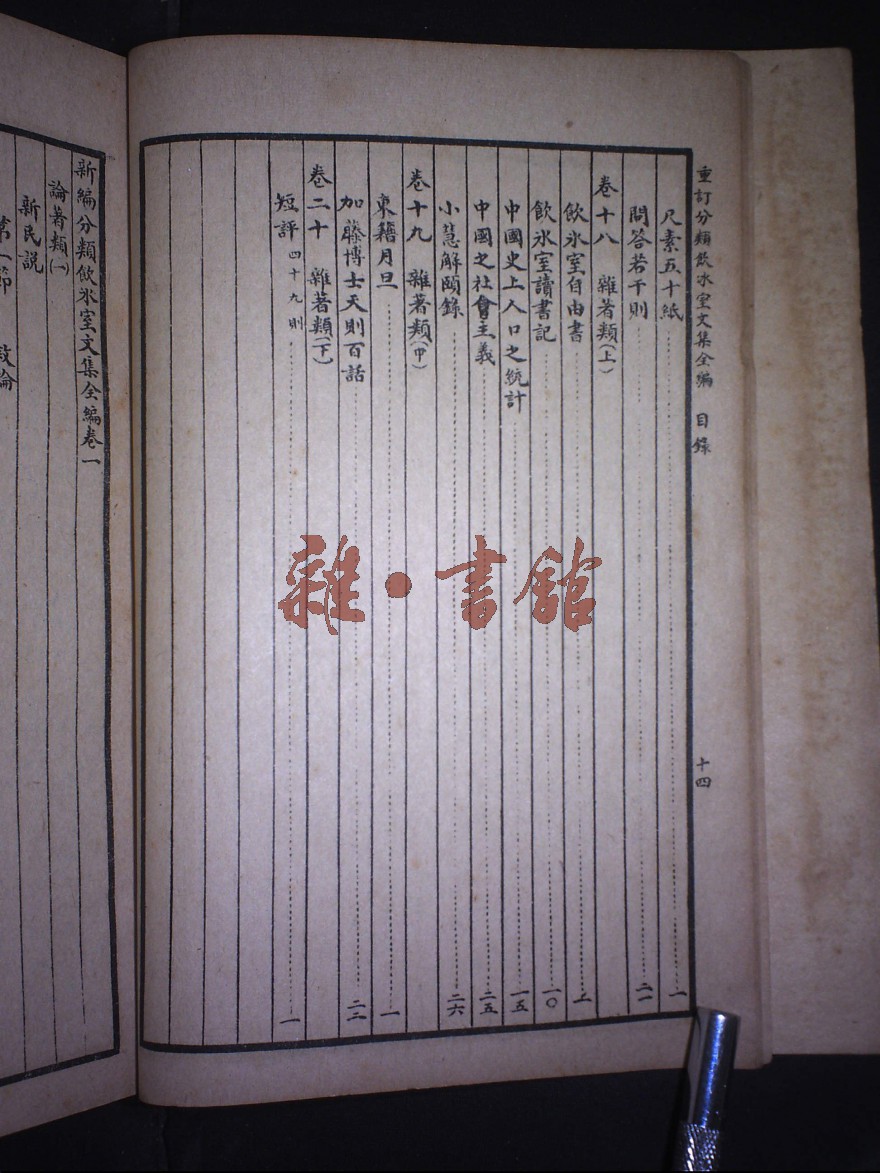 重訂分類飲氷室文集全編 目錄
十四
尺素五十紙 一
問答若干則 二一
卷十八 雜著類(上)
飲氷室自由書 一
飲氷室讀書記 一〇
中國史上人口之統計 一五
中國之社會主義 二五
小慧解頤錄 二六
卷十九 雜著類(中)
東籍月旦 一
加藤博士天則百話 二二
卷二十 雜著類(下)
短評 四十九則 一
新編分類飲氷室文集全編卷一
論著類(一)
新民說
第一節 敍論
雜·書館